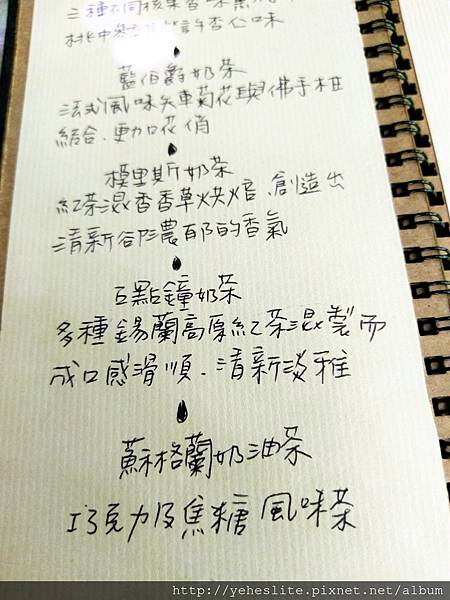 三種不同核果香味
桃中 杏仁味
藍伯爵奶茶
法式風味矢車菊花與佛手柑
結合.更加花俏
模里斯奶茶
紅茶混香香草烘焙.創造出
清新合形濃郁的香氣
五點鐘奶茶
多種錫蘭高原紅茶混製而
成口感滑順.清新淡雅
蘇格蘭奶油茶
巧克力及焦糖風味茶
http://yeheslite.pixnet.net/album